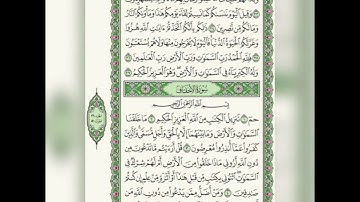 وَقِيلَ ٱلْيَوْمَ نَنسَىٰكُمْ كَمَا نَسِيتُمْ لِقَآءَ يَوْمِكُمْ هَـٰذَا وَمَأْوَىٰكُمُ ٱلنَّارُ
وَمَا لَكُم مِّن نَّـٰصِرِينَ ۝ ذَٰلِكُم بِأَنَّكُمُ ٱتَّخَذْتُمْ ءَايَـٰتِ ٱللَّهِ هُزُوًا
وَغَرَّتْكُمُ ٱلْحَيَوٰةُ ٱلدُّنْيَا ۚ فَٱلْيَوْمَ لَا يُخْرَجُونَ مِنْهَا وَلَا هُمْ يُسْتَعْتَبُونَ
۝ فَلِلَّهِ ٱلْحَمْدُ رَبِّ ٱلسَّمَـٰوَٰتِ وَرَبِّ ٱلْأَرْضِ رَبِّ ٱلْعَـٰلَمِينَ ۝
وَلَهُ ٱلْكِبْرِيَآءُ فِى ٱلسَّمَـٰوَٰتِ وَٱلْأَرْضِ ۖ وَهُوَ ٱلْعَزِيزُ ٱلْحَكِيمُ ۝
سُورَةُ الأَحْقَافِ
بِسْمِ ٱللَّهِ ٱلرَّحْمَـٰنِ ٱلرَّحِيمِ
حمٓ ۝ تَنزِيلُ ٱلْكِتَـٰبِ مِنَ ٱللَّهِ ٱلْعَزِيزِ ٱلْحَكِيمِ ۝ مَا خَلَقْنَا
ٱلسَّمَـٰوَٰتِ وَٱلْأَرْضَ وَمَا بَيْنَهُمَآ إِلَّا بِٱلْحَقِّ وَأَجَلٍ مُّسَمًّى ۚ وَٱلَّذِينَ
كَفَرُوا۟ عَمَّآ أُنذِرُوا۟ مُعْرِضُونَ ۝ قُلْ أَرَءَيْتُم مَّا تَدْعُونَ مِن
دُونِ ٱللَّهِ أَرُونِى مَاذَا خَلَقُوا۟ مِنَ ٱلْأَرْضِ أَمْ لَهُمْ شِرْكٌ فِى
ٱلسَّمَـٰوَٰتِ ۖ ٱئْتُونِى بِكِتَـٰبٍ مِّن قَبْلِ هَـٰذَآ أَوْ أَثَـٰرَةٍ مِّنْ عِلْمٍ إِن كُنتُمْ
صَـٰدِقِينَ ۝ وَمَنْ أَضَلُّ مِمَّن يَدْعُوا۟ مِن دُونِ ٱللَّهِ مَن